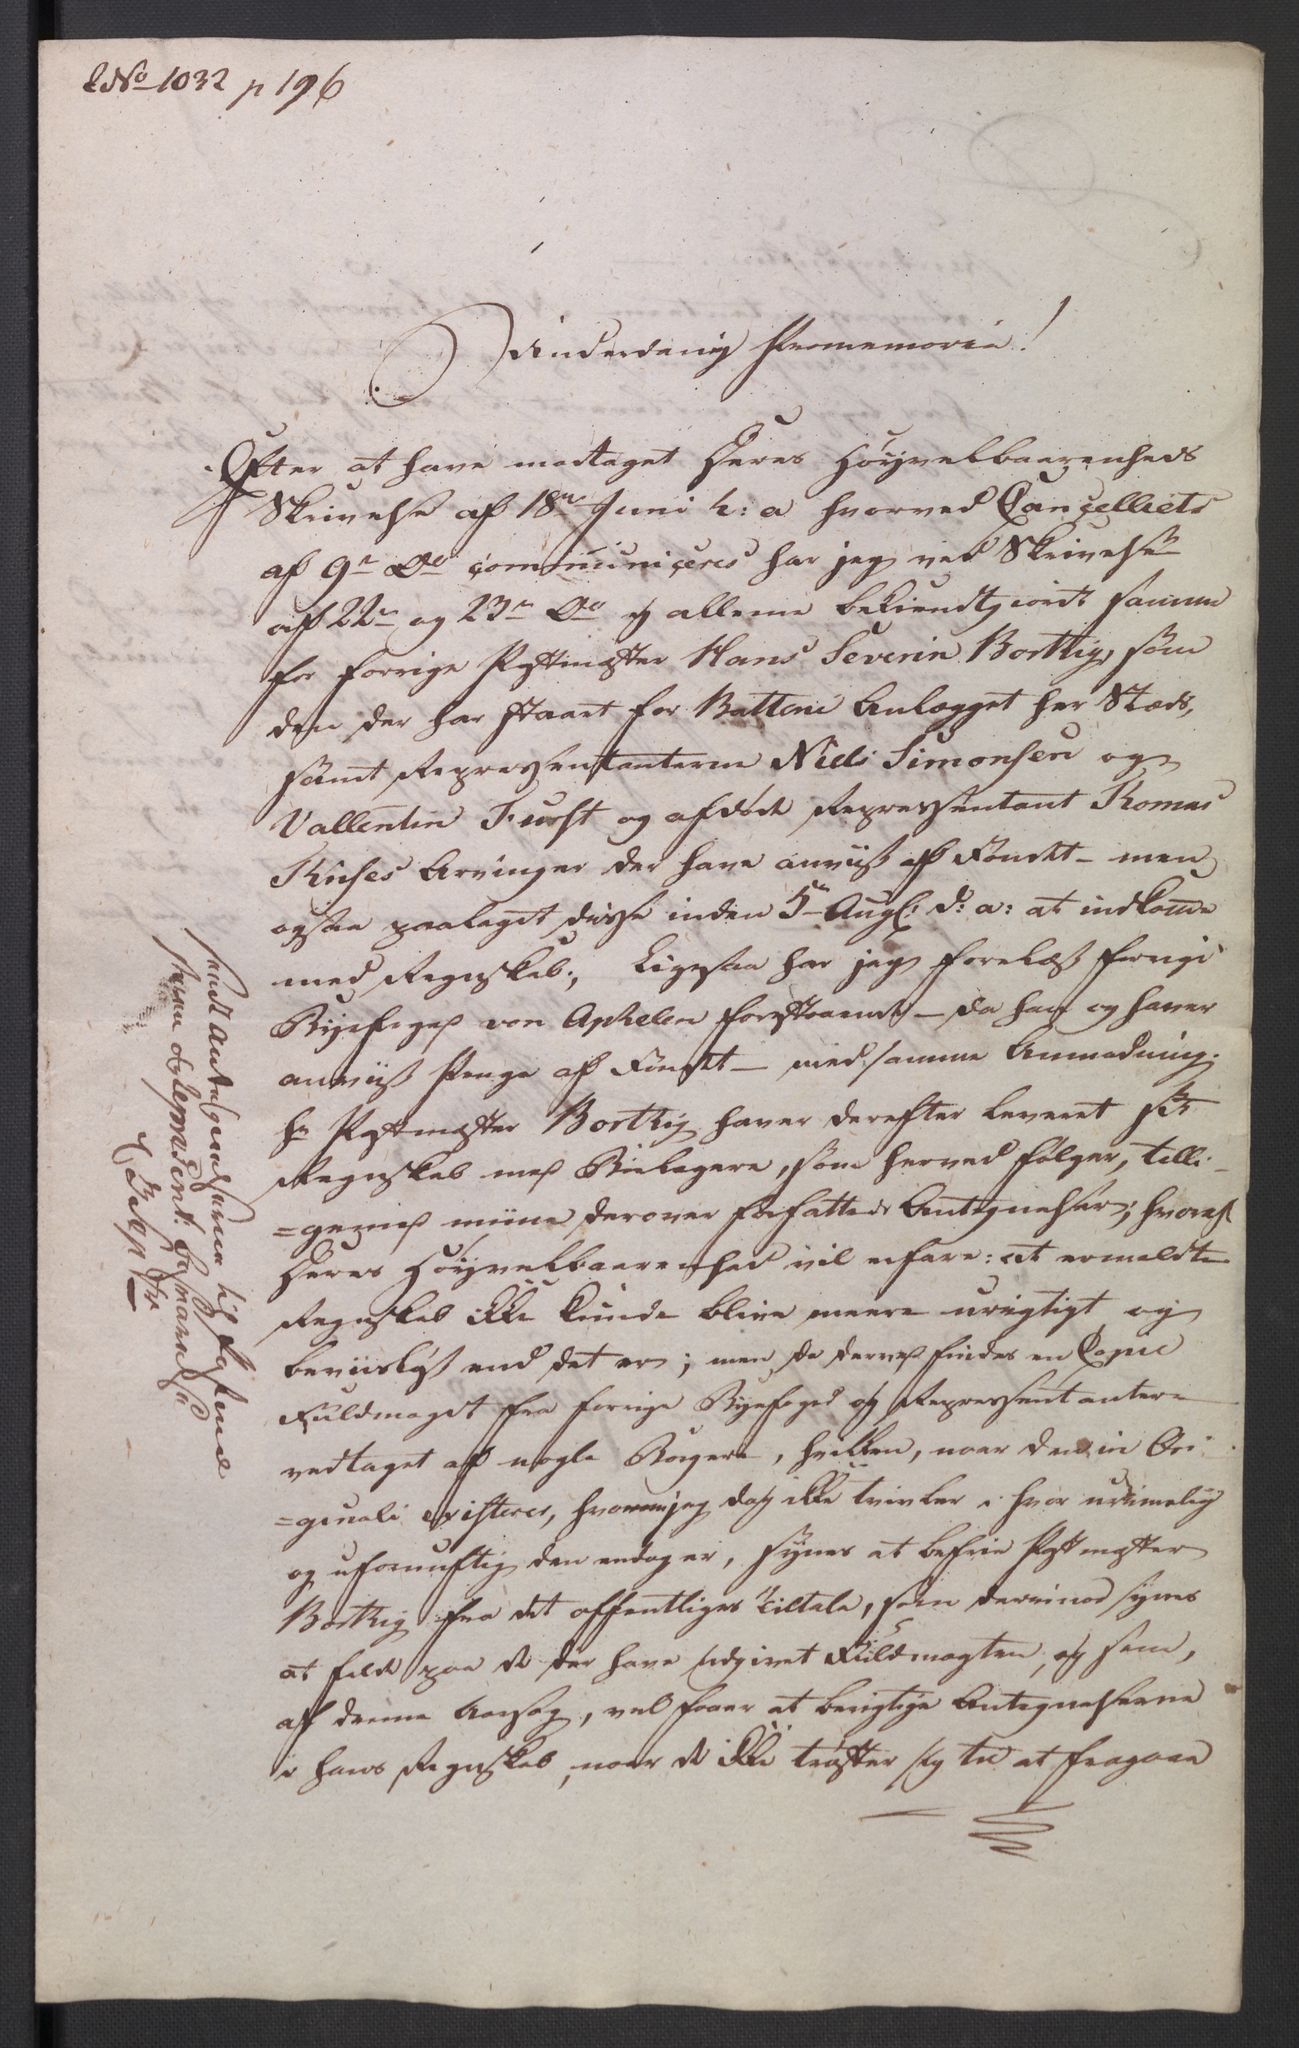 No 1032 p 196
Underdanig Promemoria!
Efter at have modtaget Deres Höÿvelbaarenheds
Skrivelse af 18de Juni h: a hvorved Cancelliets
af 9de do communiceres har jeg ved Skrivelse
af 22de og 23de do ej allene bekiendtgiordt samme
for forrige Postmester Hans Severin Borthig, som
den der har staaet for Batterie Anlægget her Stæds,
samt Repressentanterne Niels Simonsen og
Vallentin Furst og afdöde Repressentant Thomas
Thuses Arvinger der have anviist af Fondet – men
ogsaa paalaget disse inden 5te Augs: d: a: at indkomme
med Regnskab; Ligesaa har jeg forelagt forrige
Byefoged von Aphelen forestaaende – da han og haver
anviist Penge af Fondet – med samme Anmodning.
Hr Postmester Borthig haver derefter leveret sit
Regnskab med Bielagere, som herved fölger, tilli-
=gemed miine derover forfattede Antegnelser; hvoraf
Deres Höÿvelbaarenhed vil erfare: at ermeldte
Regnskab ikke kunde blive meere urigtigt og
beviislöst end det er; men da derved findes en Copie
Fuldmagt fra forrige Byefoged og Repressentantere
vedtaget af nogle Borgere, hvilken, naar den in Ori-
=ginali existerer, hvorom jeg dog ikke tvivler i hvor urimelig
og ufornuftig den endog er, synes at befrie Postmester
Borthig fra det offentliges Tiltale, som derimod synes
at falde paa de der have udgivet Fuldmagten, og som,
af denne Aarsag, vel faaer at berigtige Antegnelserne
i hans Regnskab, naar de ikke tröster sig til at fragaae
sendt Antegnelserne til Byefoged
og Represent: Besvarelse